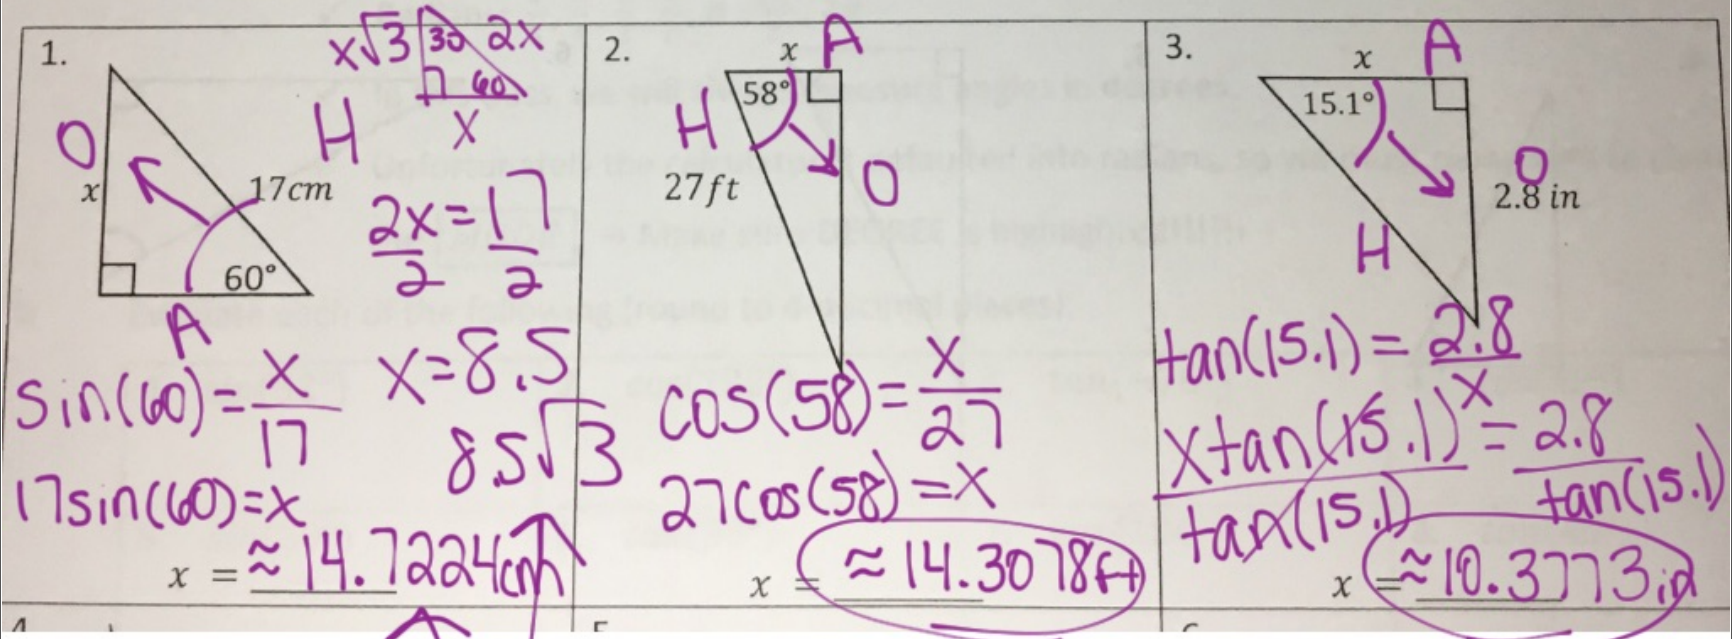 1.
x√3 30 2x
60
x
H
O
x
17cm
60°
A
2x = 17
2 2
x = 8.5
8.5√3
sin(60) = x
17
17sin(60) = x
x = ≈ 14.7224cm
2.
x A
58°
H
27ft
O
cos(58) = x
27
27cos(58) = x
x = ≈ 14.3078ft
3.
x A
15.1°
O
2.8 in
H
tan(15.1) = 2.8
x
xtan(15.1) = 2.8
tan(15.1) tan(15.1)
x = ≈ 10.3773in